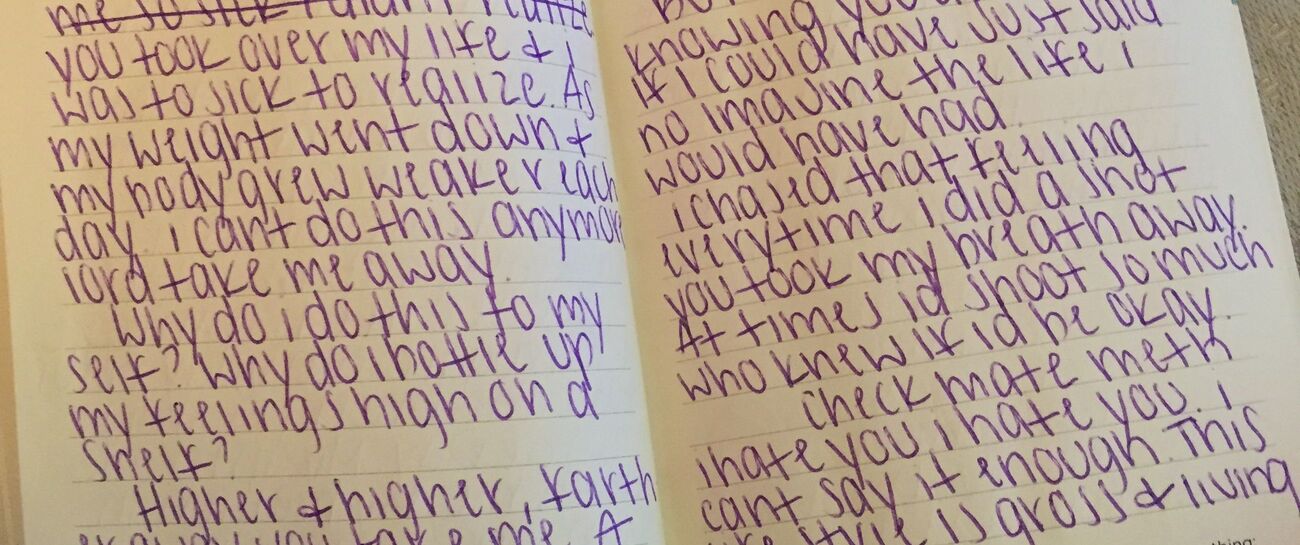 me so sick I didn't realize
you took over my life & I
was to sick to realize. As
my weight went down &
my body grew weaker each
day i cant do this anymore
lord take me away.
Why do i do this to my
self? Why do i bottle up
my feelings high on a
shelf?
Higher & higher, farth
you take me. A
knowing you
if I could have just said
no imagine the life i
would have had.
i chased that feeling
everytime i did a shot
you took my breath away.
At times id shoot so much
who knew if id be okay.
check mate meth
i hate you, i hate you. i
cant say it enough. This
is gross & living
thing: